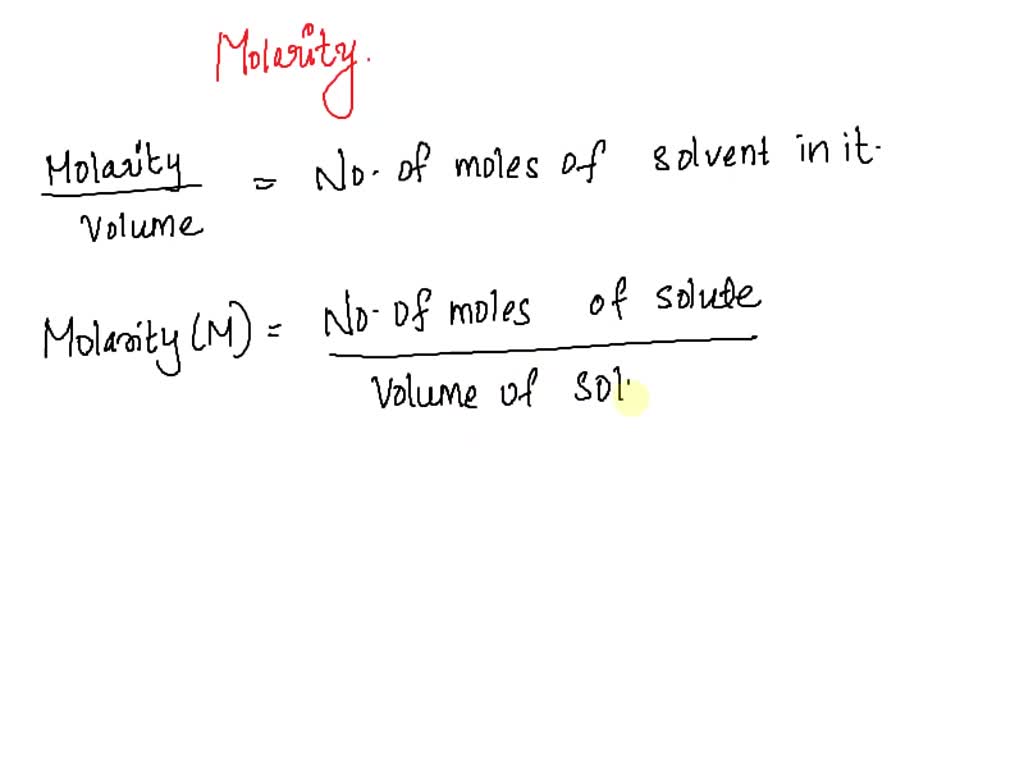 Molarity.
Molarity
Volume
= No. of moles of solvent in it.
Molarity (M) =
No. of moles of solute
Volume of sol.